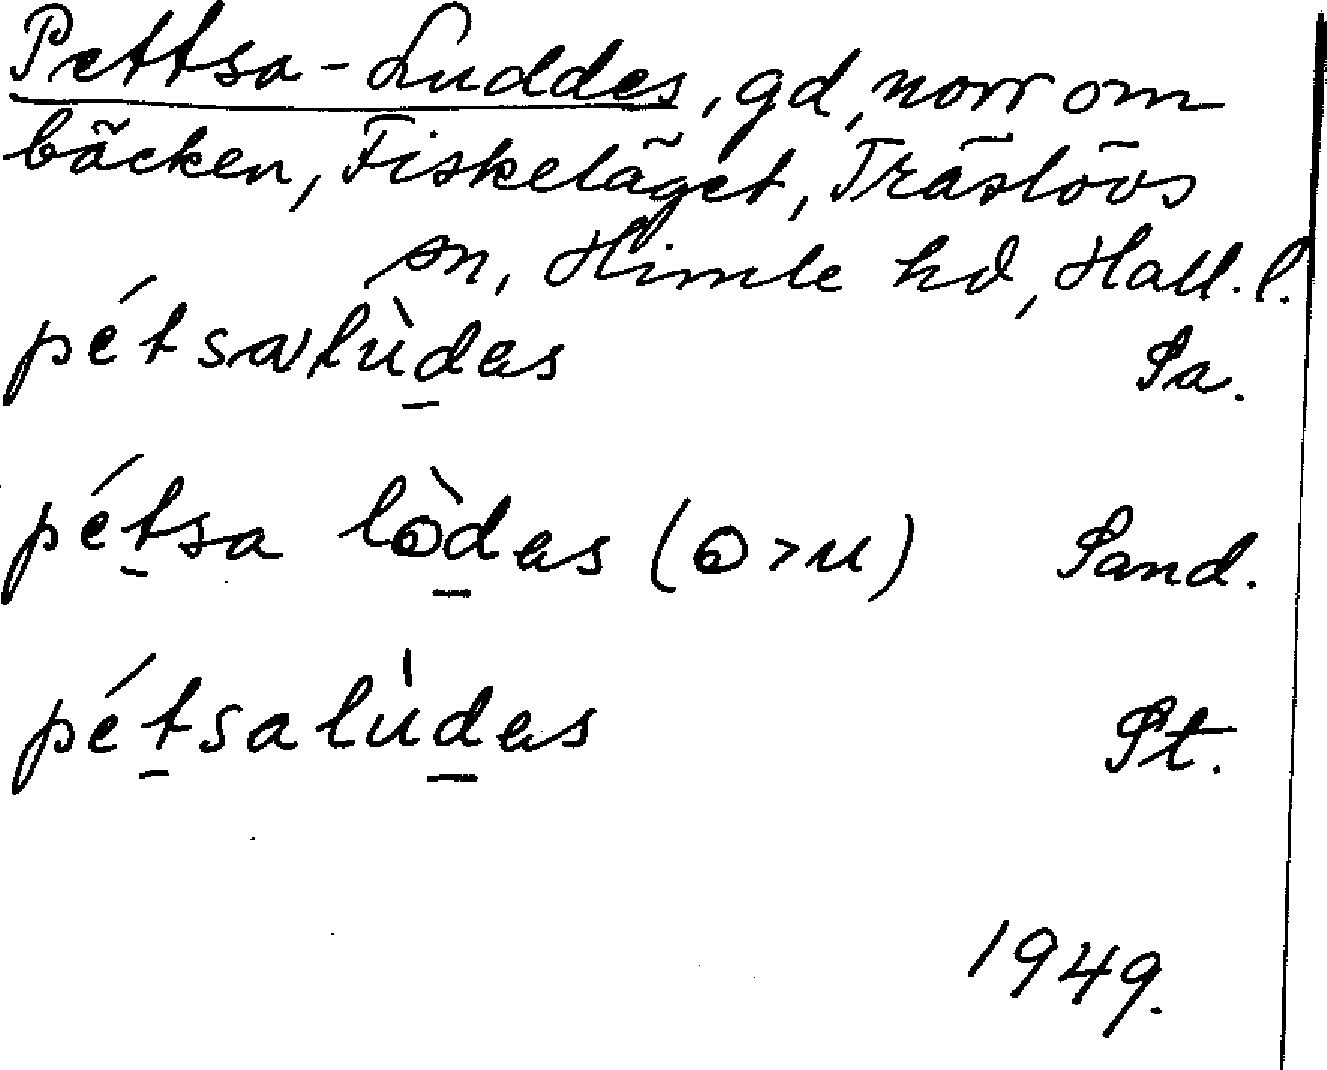 Pettsa-Luddes, gd, norr om
bäcken, Fiskeläget, Träslövs
sn, Himle hd, Hall. l.
pétsalùdas Sa.
pétsa lòdas (o > u) Sand.
pétsalùdas St.
1949.